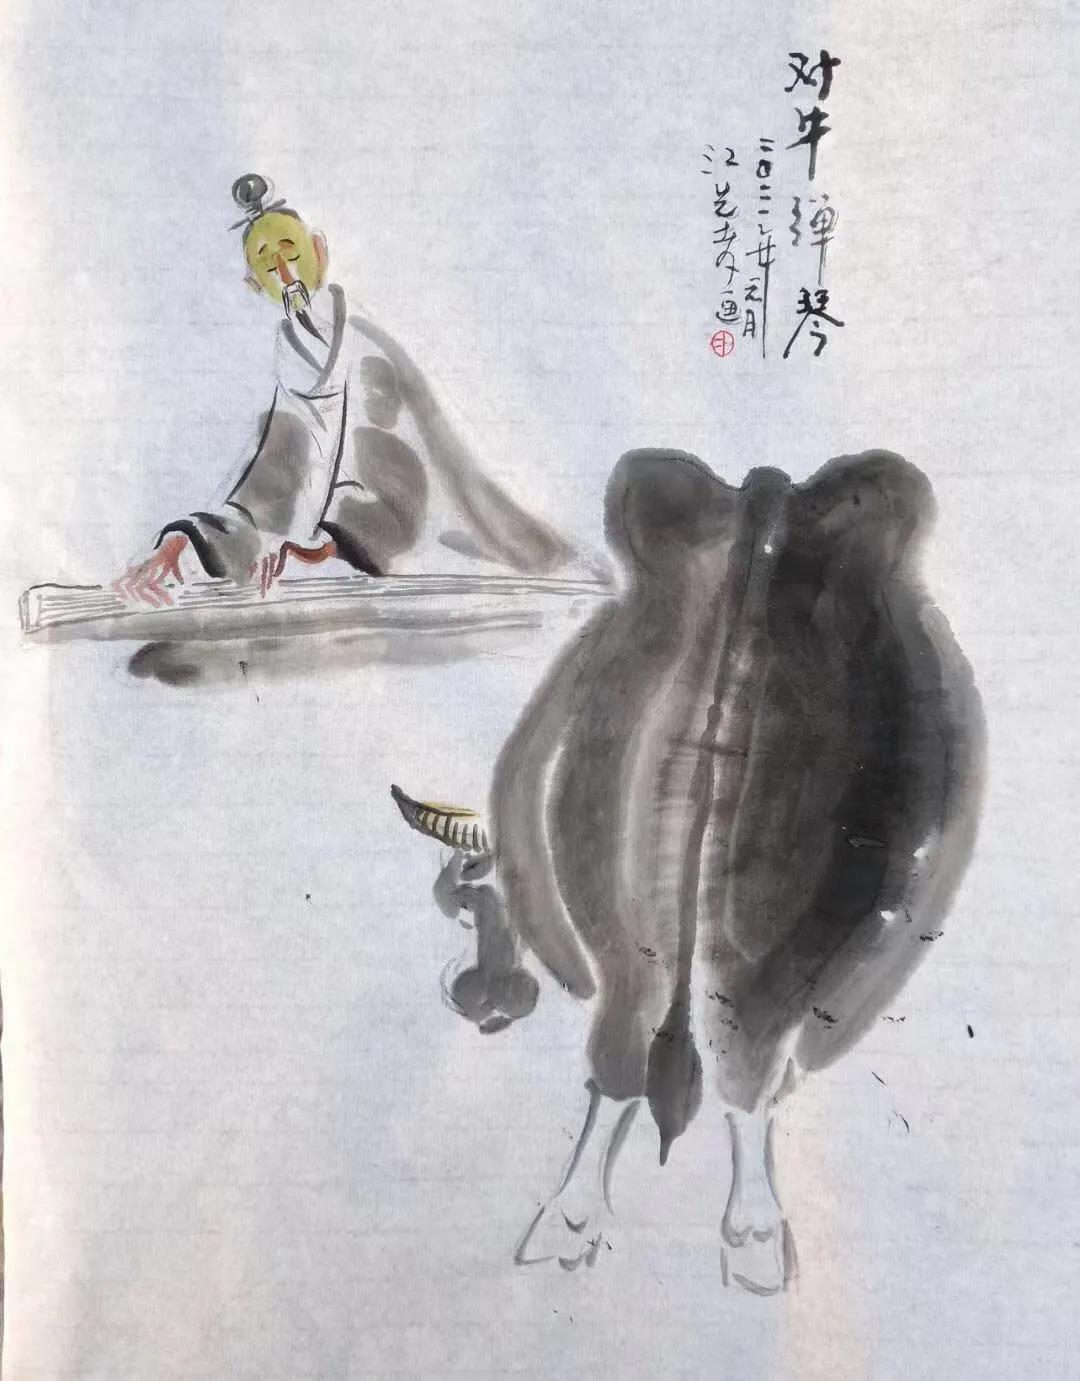 对牛弹琴
二〇二一年元月
江 画